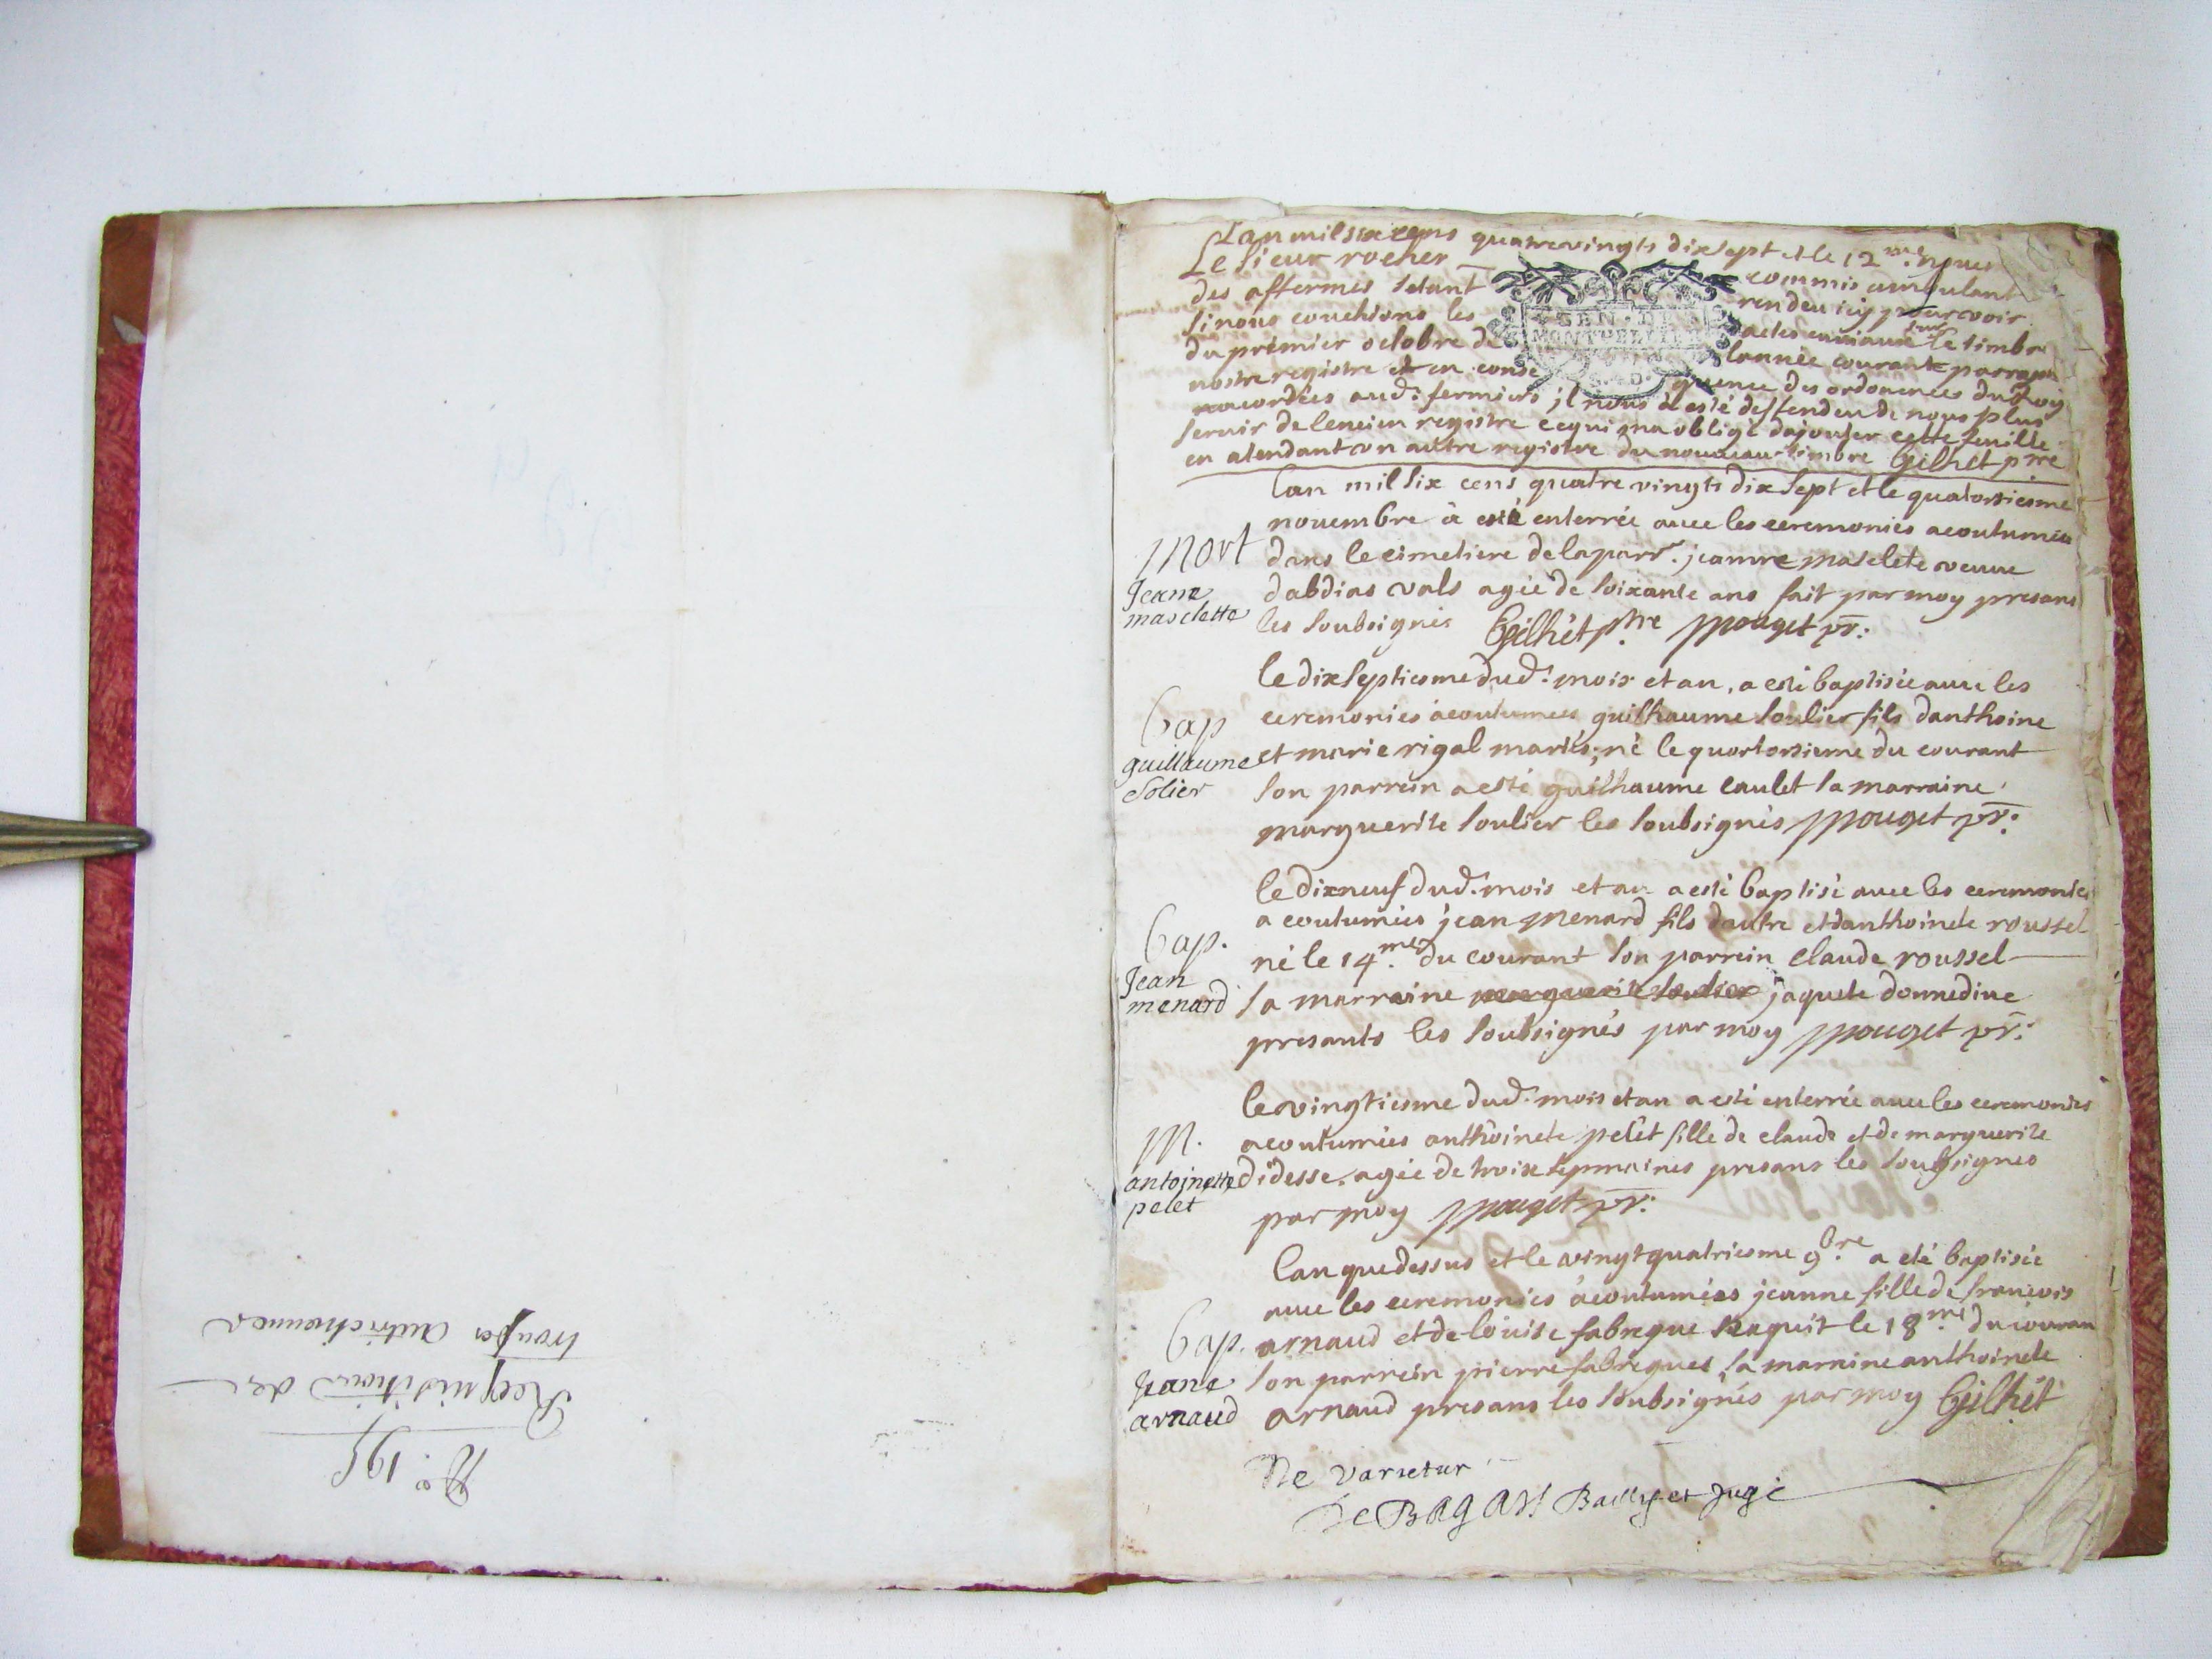 N.º 195
Requisitions des
troupes autrichiennes
Lan mil six cens quatre vingts dix sept et le 12me nover
Le sieur rocher commis ambulant
des affermes setant rendeu icy pour voir
si nous couchions les actes
du prémier octobre de lannée courante
nostre registre et en conse quence des ordonences du Roy
acordées aud. fermiers il nous a esté deffendeu de nous plus
servir de lencien registre cequi ma obligé dajouter cette feuille
en atendant un autre registre du nouveau timbre Gilhet pre
SEN. DE
MONTPELLIER
Mort
Jeane
masclette
Lan mil six cens quatre vingts dix sept et le quatorziesme
novembre à esté enterrée avec les ceremonies acoutumées
dans le cimetiere de la parr. jeanne masclete veuve
dabdias vals agée de soixante ans fait par moy presans
les soubsignés Gilhet ptre Pouget pr.
Bap
guillaume
Solier
le dix septiesme dud. mois et an, a esté baptisée avec les
ceremonies acoutumées guilhaume soulier fils danthoine
et marie rigal mariés, né le quortorzieme du courant
son parrein a esté guilhaume caulet sa marraine
marguerite soulier les soubsignés Pouget pr.
Bap.
Jean
menard
le dixneuf dud. mois et an a esté baptisé avec les ceremonies
acoutumées jean menard fils dautre et danthoinete roussel
né le 14me du courant son parrein claude roussel
sa marraine marguerite soulier jaquete donnedine
presants les soubsignés par moy Pouget pr.
M.
antoinette
pelet
le vingtiesme dud. mois et an a esté enterrée avec les ceremonies
acoutumées anthoinete pelet fille de claude et de marguerite
didesse, agée de troix sepmaines presans les soubsignes
par moy Pouget pr.
Bap.
Jeane
arnaud
Lan que dessus et le vingt quatriesme 9bre a eté baptisée
avec les ceremonies àcoutumées jeanne fille de francois
arnaud et de louise fabregue naquit le 18me du couran
son parrein pierre fabregues, sa marraine anthoinete
arnaud presans les soubsignés par moy Gilhet
Ne Varietur
De BAGARS Bailly et Juge